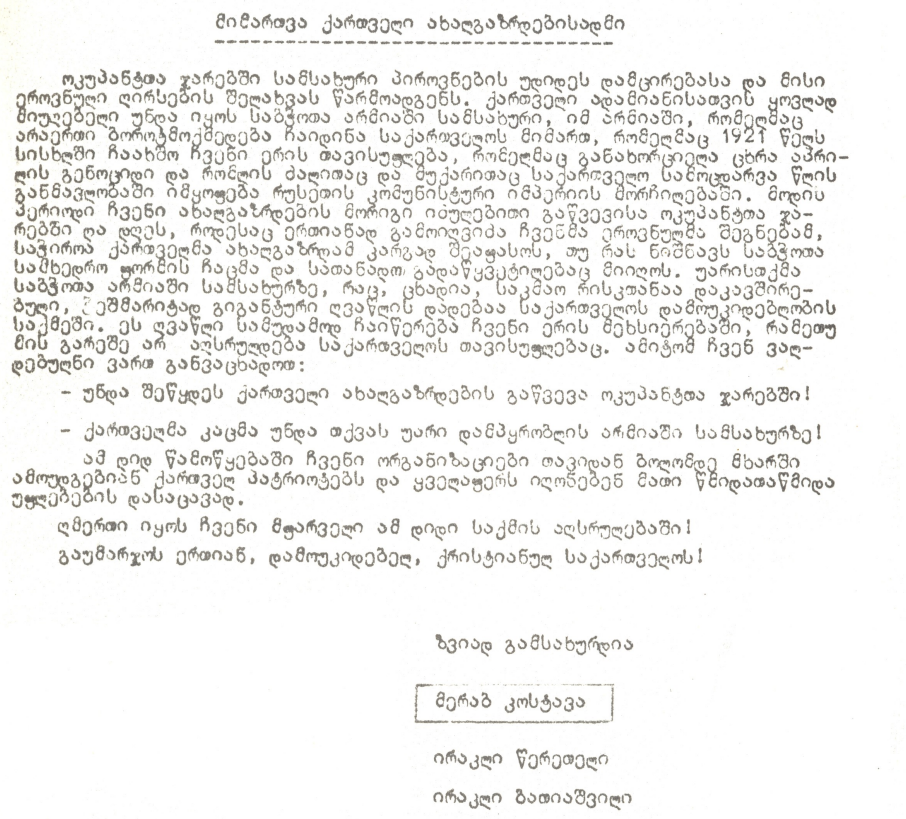 მიმართვა ქართველი ახალგაზრდებისადმი
ოკუპანტთა ჯარებში სამსახური პიროვნების უდიდეს დამცირებასა და მისი
ეროვნული ღირსების შელახვას წარმოადგენს. ქართველი ადამიანისათვის ყოვლად
მიუღებელი უნდა იყოს საბჭოთა არმიაში სამსახური, იმ არმიაში, რომელმაც
არაერთი ბოროტმოქმედება ჩაიდინა საქართველოს მიმართ, რომელმაც 1921 წელს
სისხლში ჩაახშო ჩვენი ერის თავისუფლება, რომელმაც განახორციელა ცხრა აპრი-
ლის გენოციდი და რომლის ძალითაც და მუქარითაც საქართველო სამოცდარვა წლის
განმავლობაში იმყოფება რუსეთის კომუნისტური იმპერიის მორჩილებაში. მოდის
პერიოდი ჩვენი ახალგაზრდების მორიგი იძულებითი გაწვევისა ოკუპანტთა ჯა-
რებში და დღეს, როდესაც ერთიანად გამოიღვიძა ჩვენმა ეროვნულმა შეგნებამ,
საჭიროა ქართველმა ახალგაზრდამ კარგად შეაფასოს, თუ რას ნიშნავს საბჭოთა
სამხედრო ფორმის ჩაცმა და სათანადო გადაწყვეტილებაც მიიღოს. უარისთქმა
საბჭოთა არმიაში სამსახურზე, რაც, ცხადია, საკმაო რისკთანაა დაკავშირე-
ბული, ჭეშმარიტად გიგანტური ღვაწლის დადებაა საქართველოს დამოუკიდებლობის
საქმეში. ეს ღვაწლი სამუდამოდ ჩაიწერება ჩვენი ერის მეხსიერებაში, რამეთუ
მის გარეშე არ აღსრულდება საქართველოს თავისუფლებაც. ამიტომ ჩვენ ვალ-
დებულნი ვართ განვაცხადოთ:
- უნდა შეწყდეს ქართველი ახალგაზრდების გაწვევა ოკუპანტთა ჯარებში!
- ქართველმა კაცმა უნდა თქვას უარი დამპყრობლის არმიაში სამსახურზე!
ამ დიდ წამოწყებაში ჩვენი ორგანიზაციები თავიდან ბოლომდე მხარში
ამოუდგებიან ქართველ პატრიოტებს და ყველაფერს იღონებენ მათი წმიდათაწმიდა
უფლებების დასაცავად.
ღმერთი იყოს ჩვენი მფარველი ამ დიდი საქმის აღსრულებაში!
გაუმარჯოს ერთიან, დამოუკიდებელ, ქრისტიანულ საქართველოს!
ზვიად გამსახურდია
მერაბ კოსტავა
ირაკლი წერეთელი
ირაკლი ბათიაშვილი